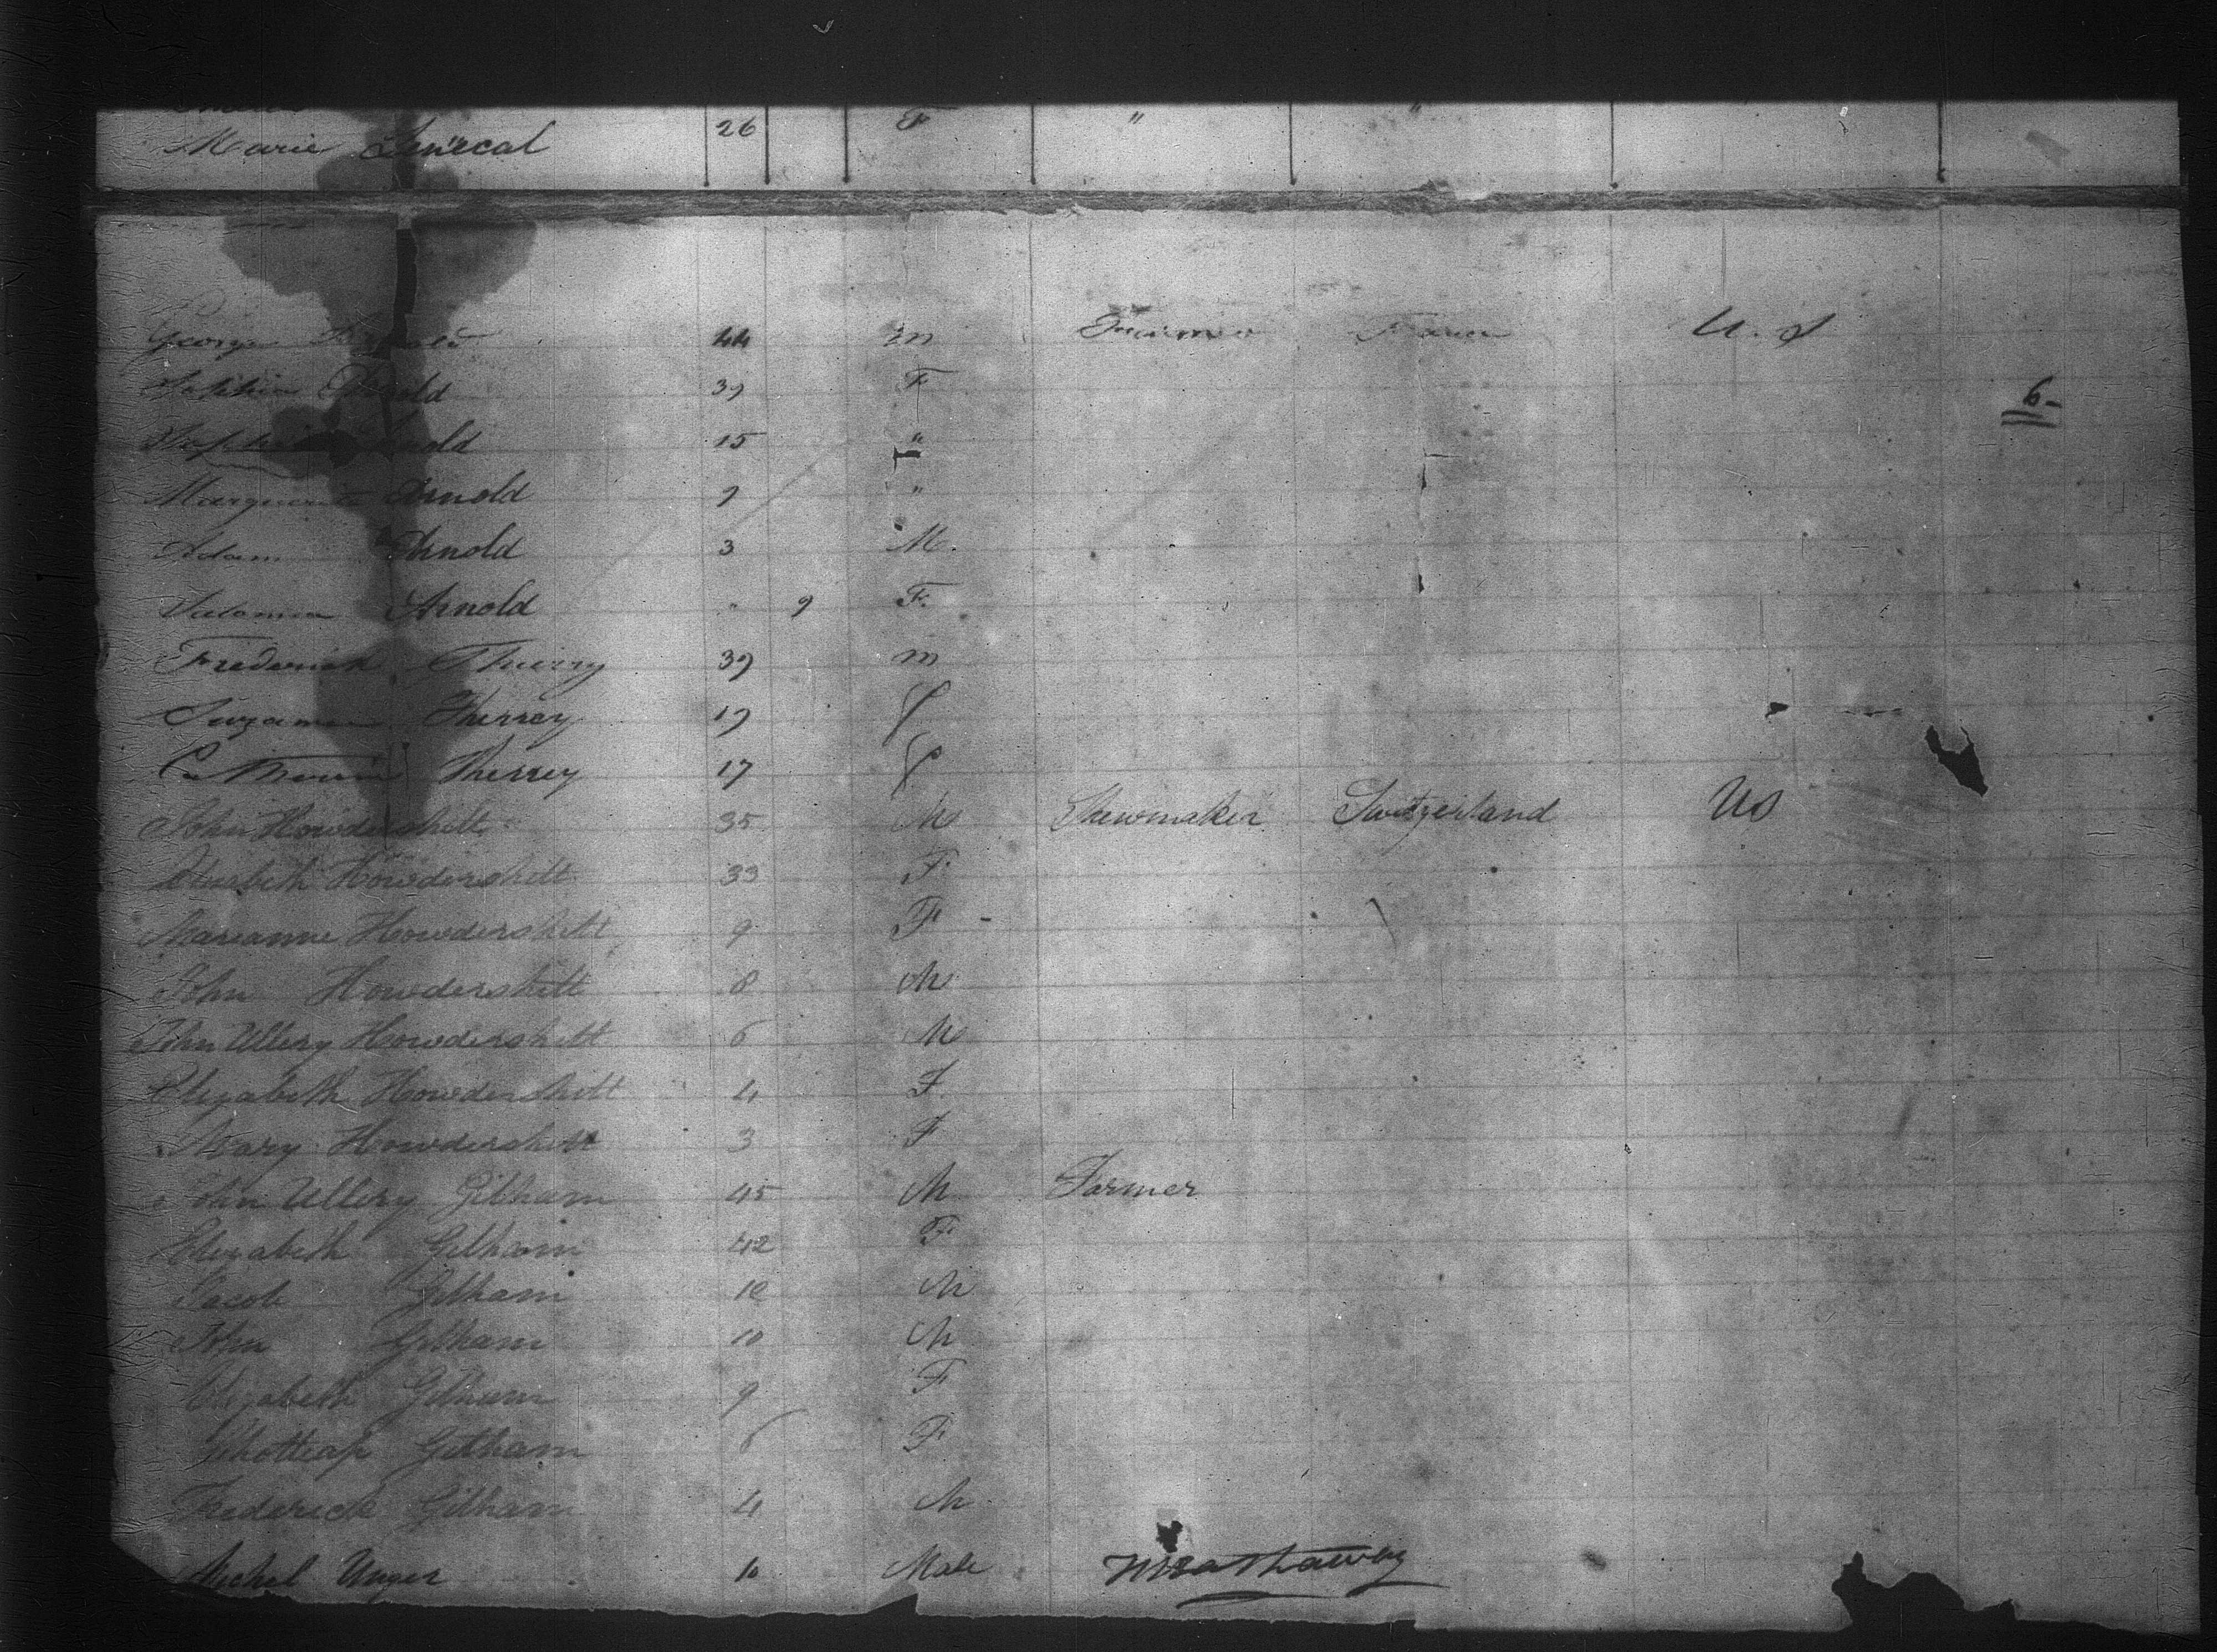 Marie Senécal 26 F " "
George Arnold 44 m Farmer France U. S
Arnold 39 F 6-
Arnold 15 "
Marguerite Arnold 9 "
Adam Arnold 3 M.
Salomea Arnold " 9 F.
Frederick Thierry 39 m
Suzanne Therrey 19 f
Catherine Therrey 17 f
John Howdershilt 35 M Shewmaker Switzerland US
Howdershilt 33 F
Marianne Howdershilt 9 F -
John Howdershilt 8 M
John Ullery Howdershilt 6 M
Elizabeth Howdershilt 4 F.
Mary Howdershilt 3 F
John Ullery Gilham 45 M Farmer
Elizabeth Gilham 42 F
Jacob Gilham 12 M
John Gilham 10 M
Elizabeth Gilham 9 F
Gilham 6 F
Frederick Gilham 4 M
Michel Unger 10 Male